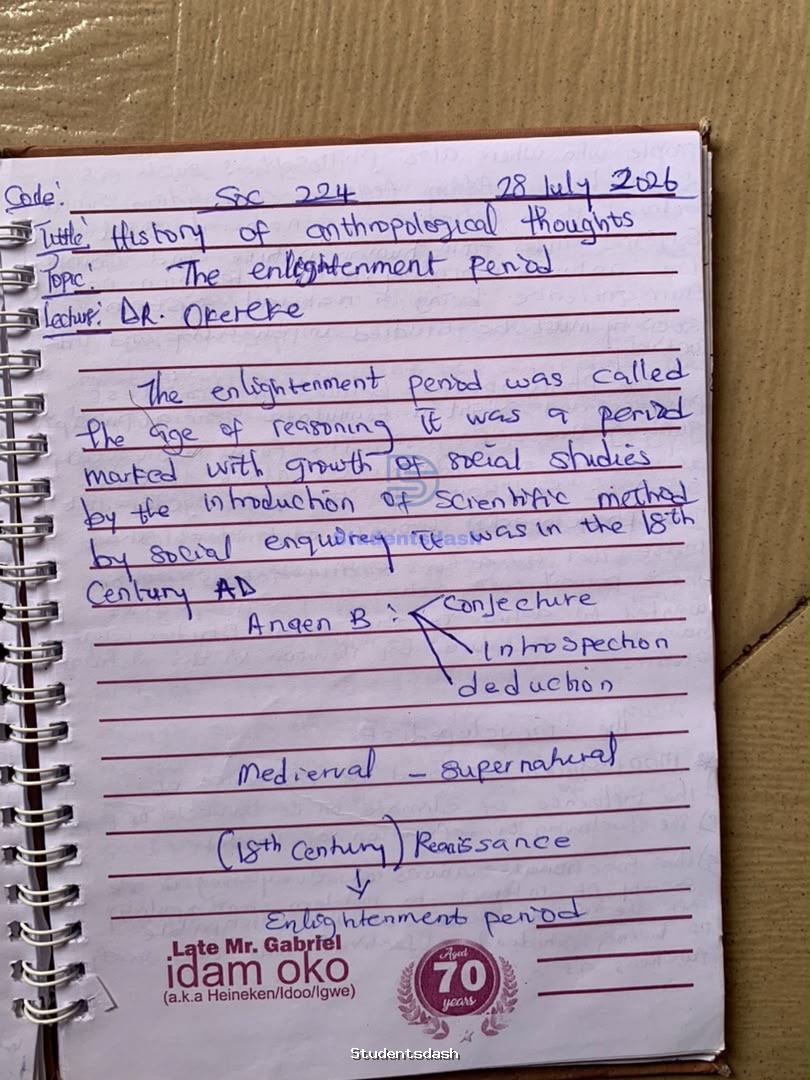 Code: Soc 224 28 July 2026
Tittle: History of anthropological thoughts
Topic: The enlightenment period
Lecture: DR. Okereke
The enlightenment period was called
the age of reasoning it was a period
marked with growth of social studies
by the introduction of scientific method
by social enquirey it was in the 18th
Century AD
B : conjecture
introspection
deduction
Medierval – supernatural
(18th Century) Renaissance
↓
Enlightenment period
Late Mr. Gabriel
idam oko
(a.k.a Heineken/Idoo/Igwe)
Aged
70
years
Studentsdash
Studentsdash